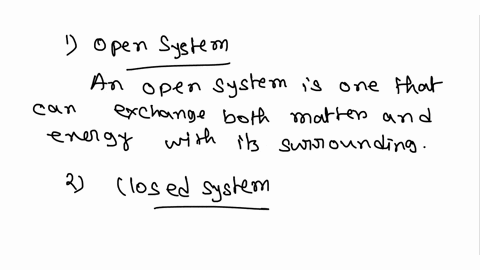 1) Open System
An open system is one that
can exchange both matter and
energy with its surrounding.
2) Closed system